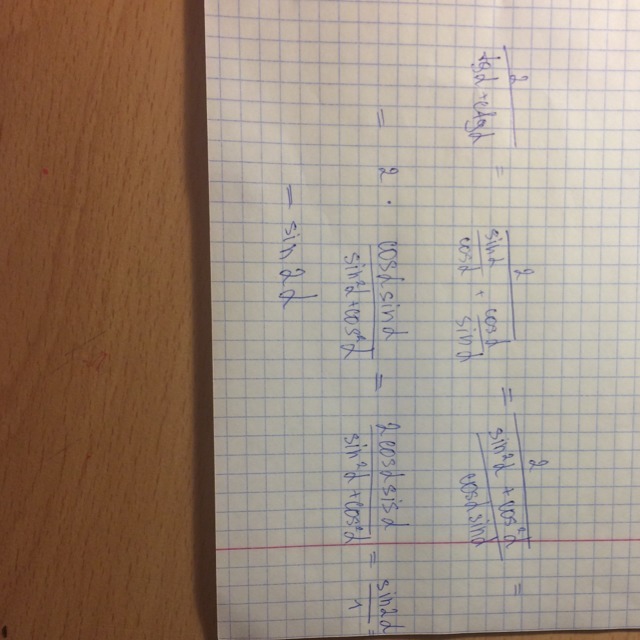 2/(tgα + ctgα) = 2/(sinα/cosα + cosα/sinα) = 2/((sin²α + cos²α)/(cosα sinα)) =
= 2 · (cosα sinα)/(sin²α + cos²α) = (2cosα sinα)/(sin²α + cos²α) = sin2α/1 =
= sin 2α